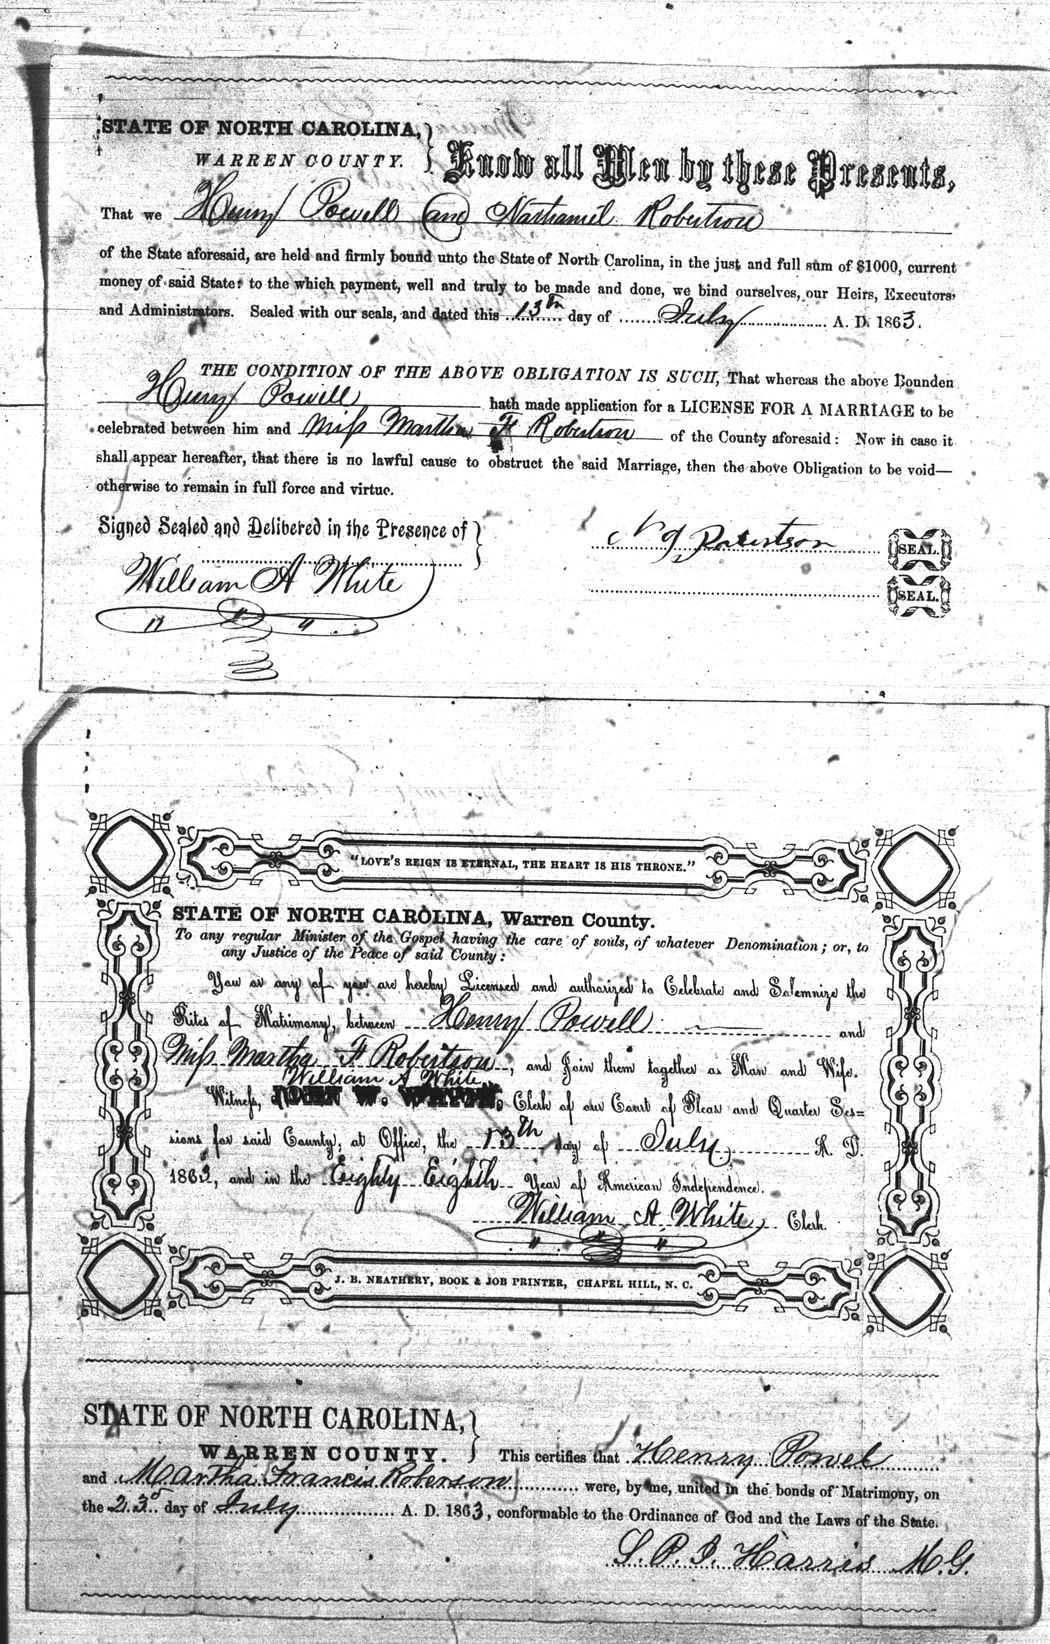 STATE OF NORTH CAROLINA,
WARREN COUNTY.
Know all Men by these Presents,
That we Henry Powell and Nathaniel Robertson
of the State aforesaid, are held and firmly bound unto the State of North Carolina, in the just and full sum of $1000, current
money of said State: to the which payment, well and truly to be made and done, we bind ourselves, our Heirs, Executors
and Administrators. Sealed with our seals, and dated this 13th day of July A. D. 1863.
THE CONDITION OF THE ABOVE OBLIGATION IS SUCH, That whereas the above Bounden
Henry Powell hath made application for a LICENSE FOR A MARRIAGE to be
celebrated between him and Miss Martha F Robertson of the County aforesaid: Now in case it
shall appear hereafter, that there is no lawful cause to obstruct the said Marriage, then the above Obligation to be void—
otherwise to remain in full force and virtue.
Signed Sealed and Delibered in the Presence of
N g Robertson SEAL.
William A White
SEAL.
"LOVE'S REIGN IS ETERNAL, THE HEART IS HIS THRONE."
STATE OF NORTH CAROLINA, Warren County.
To any regular Minister of the Gospel having the care of souls, of whatever Denomination; or, to
any Justice of the Peace of said County:
You or any of you are hereby Licensed and authorized to Celebrate and Solemnize the
Rites of Matrimony, between Henry Powell and
Miss Martha F Robertson, and Join them together as Man and Wife.
William A White
Witness, JOHN W. WHITE, Clerk of our Court of Pleas and Quarter Ses=
sions for said County, at Office, the 13th day of July A. D.
1863, and in the Eighty Eighth Year of American Independence.
William A. White, Clerk.
J. B. NEATHERY, BOOK & JOB PRINTER, CHAPEL HILL, N. C.
STATE OF NORTH CAROLINA,
WARREN COUNTY.
This certifies that Henry Powel
and Martha Francis Roberson were, by me, united in the bonds of Matrimony, on
the 23d day of July A. D. 1863, conformable to the Ordinance of God and the Laws of the State.
S. P. J. Harris M.G.